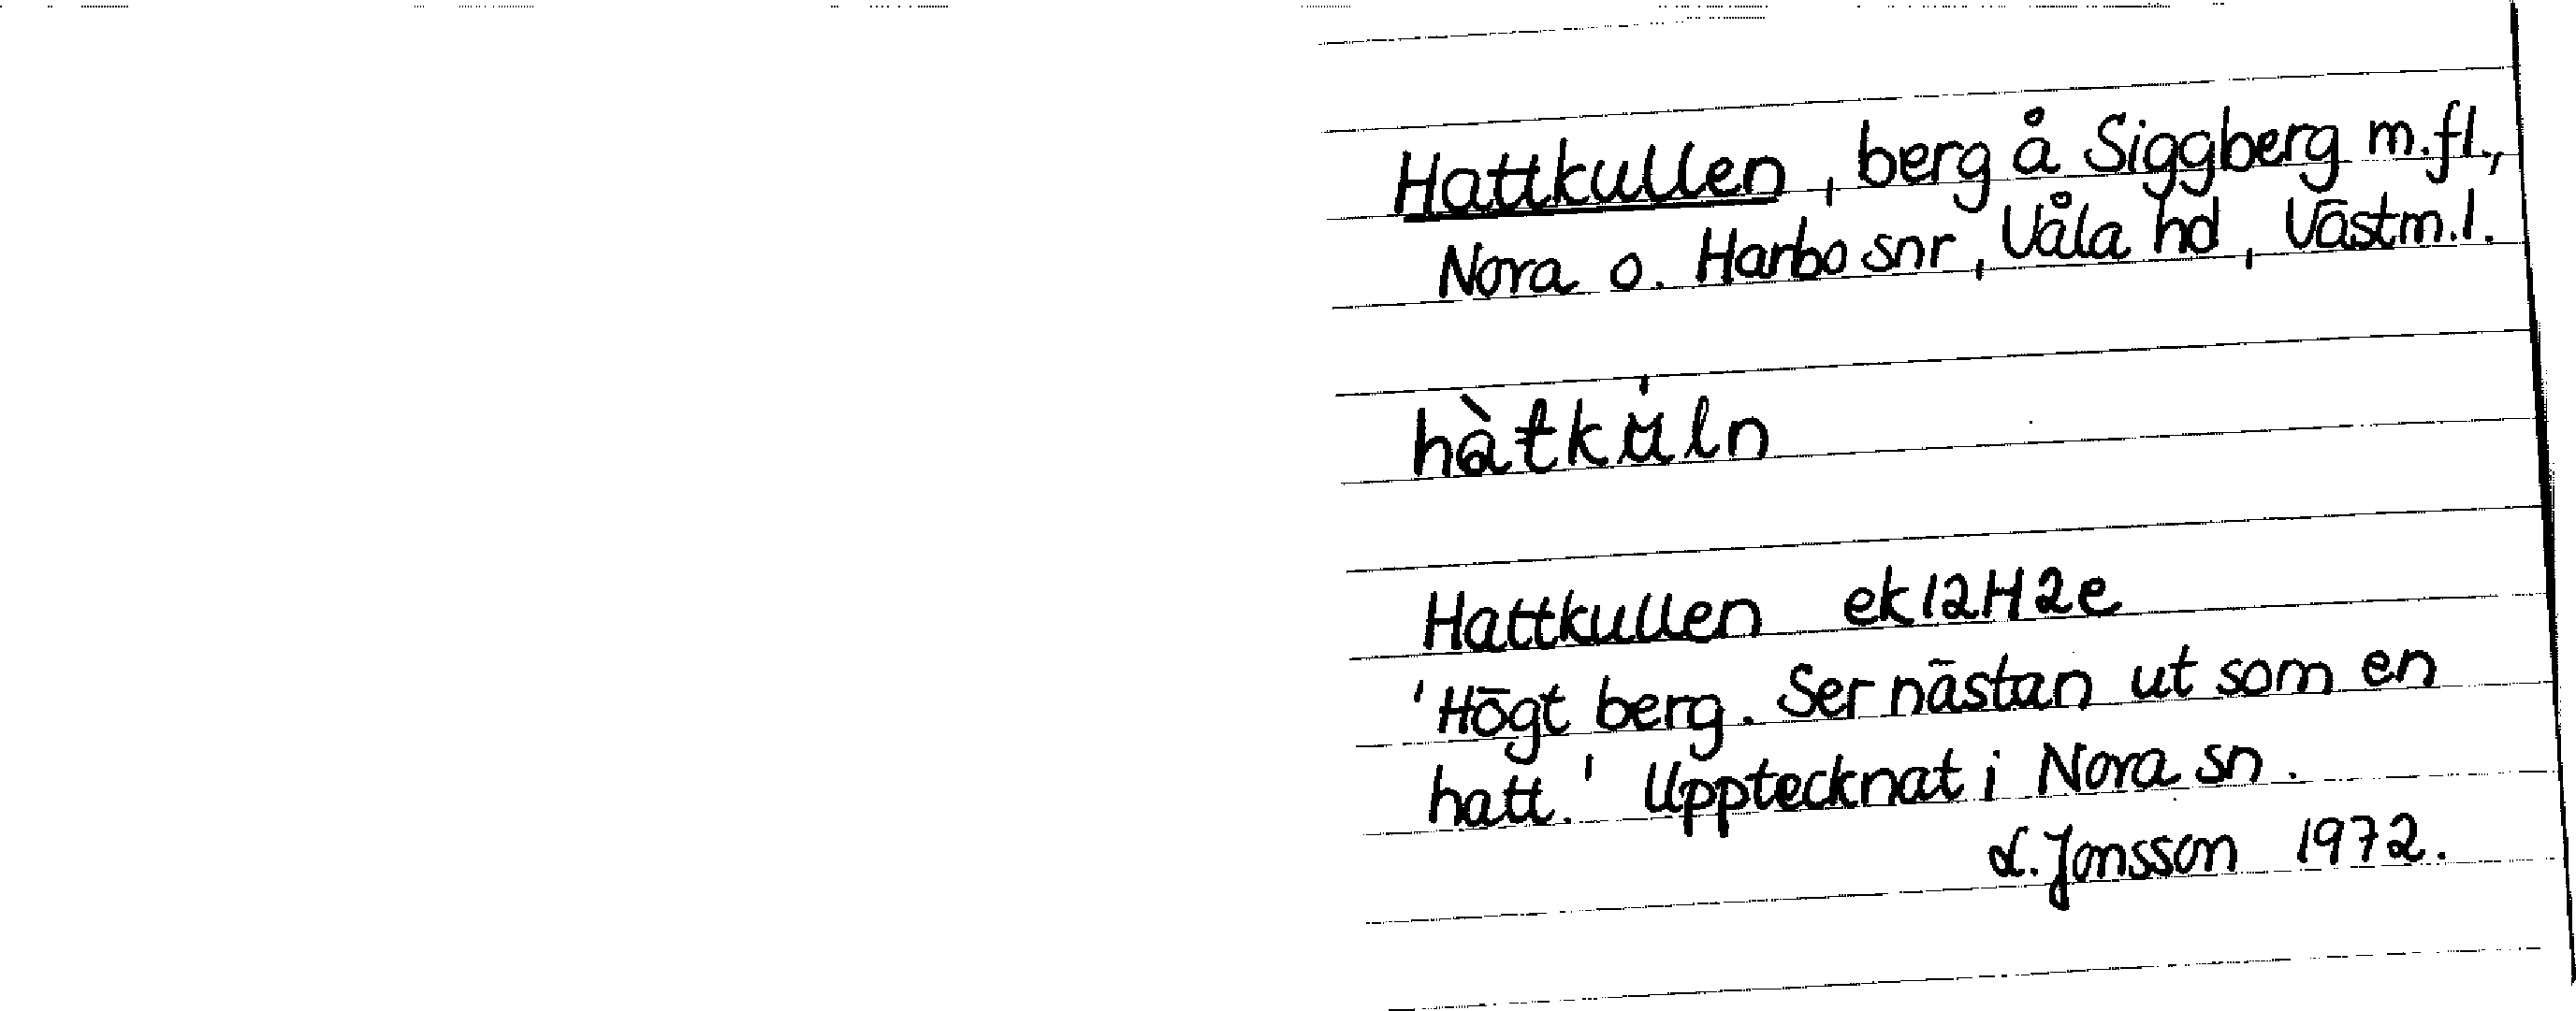 Hattkullen, berg å Siggberg m.fl.,
Nora o. Harbo snr, Våla hd, Västm.l.
hàtku̇ln
Hattkullen ek12H2e
'Högt berg. Ser nästan ut som en
hatt.' Upptecknat i Nora sn.
L. Jonsson 1972.